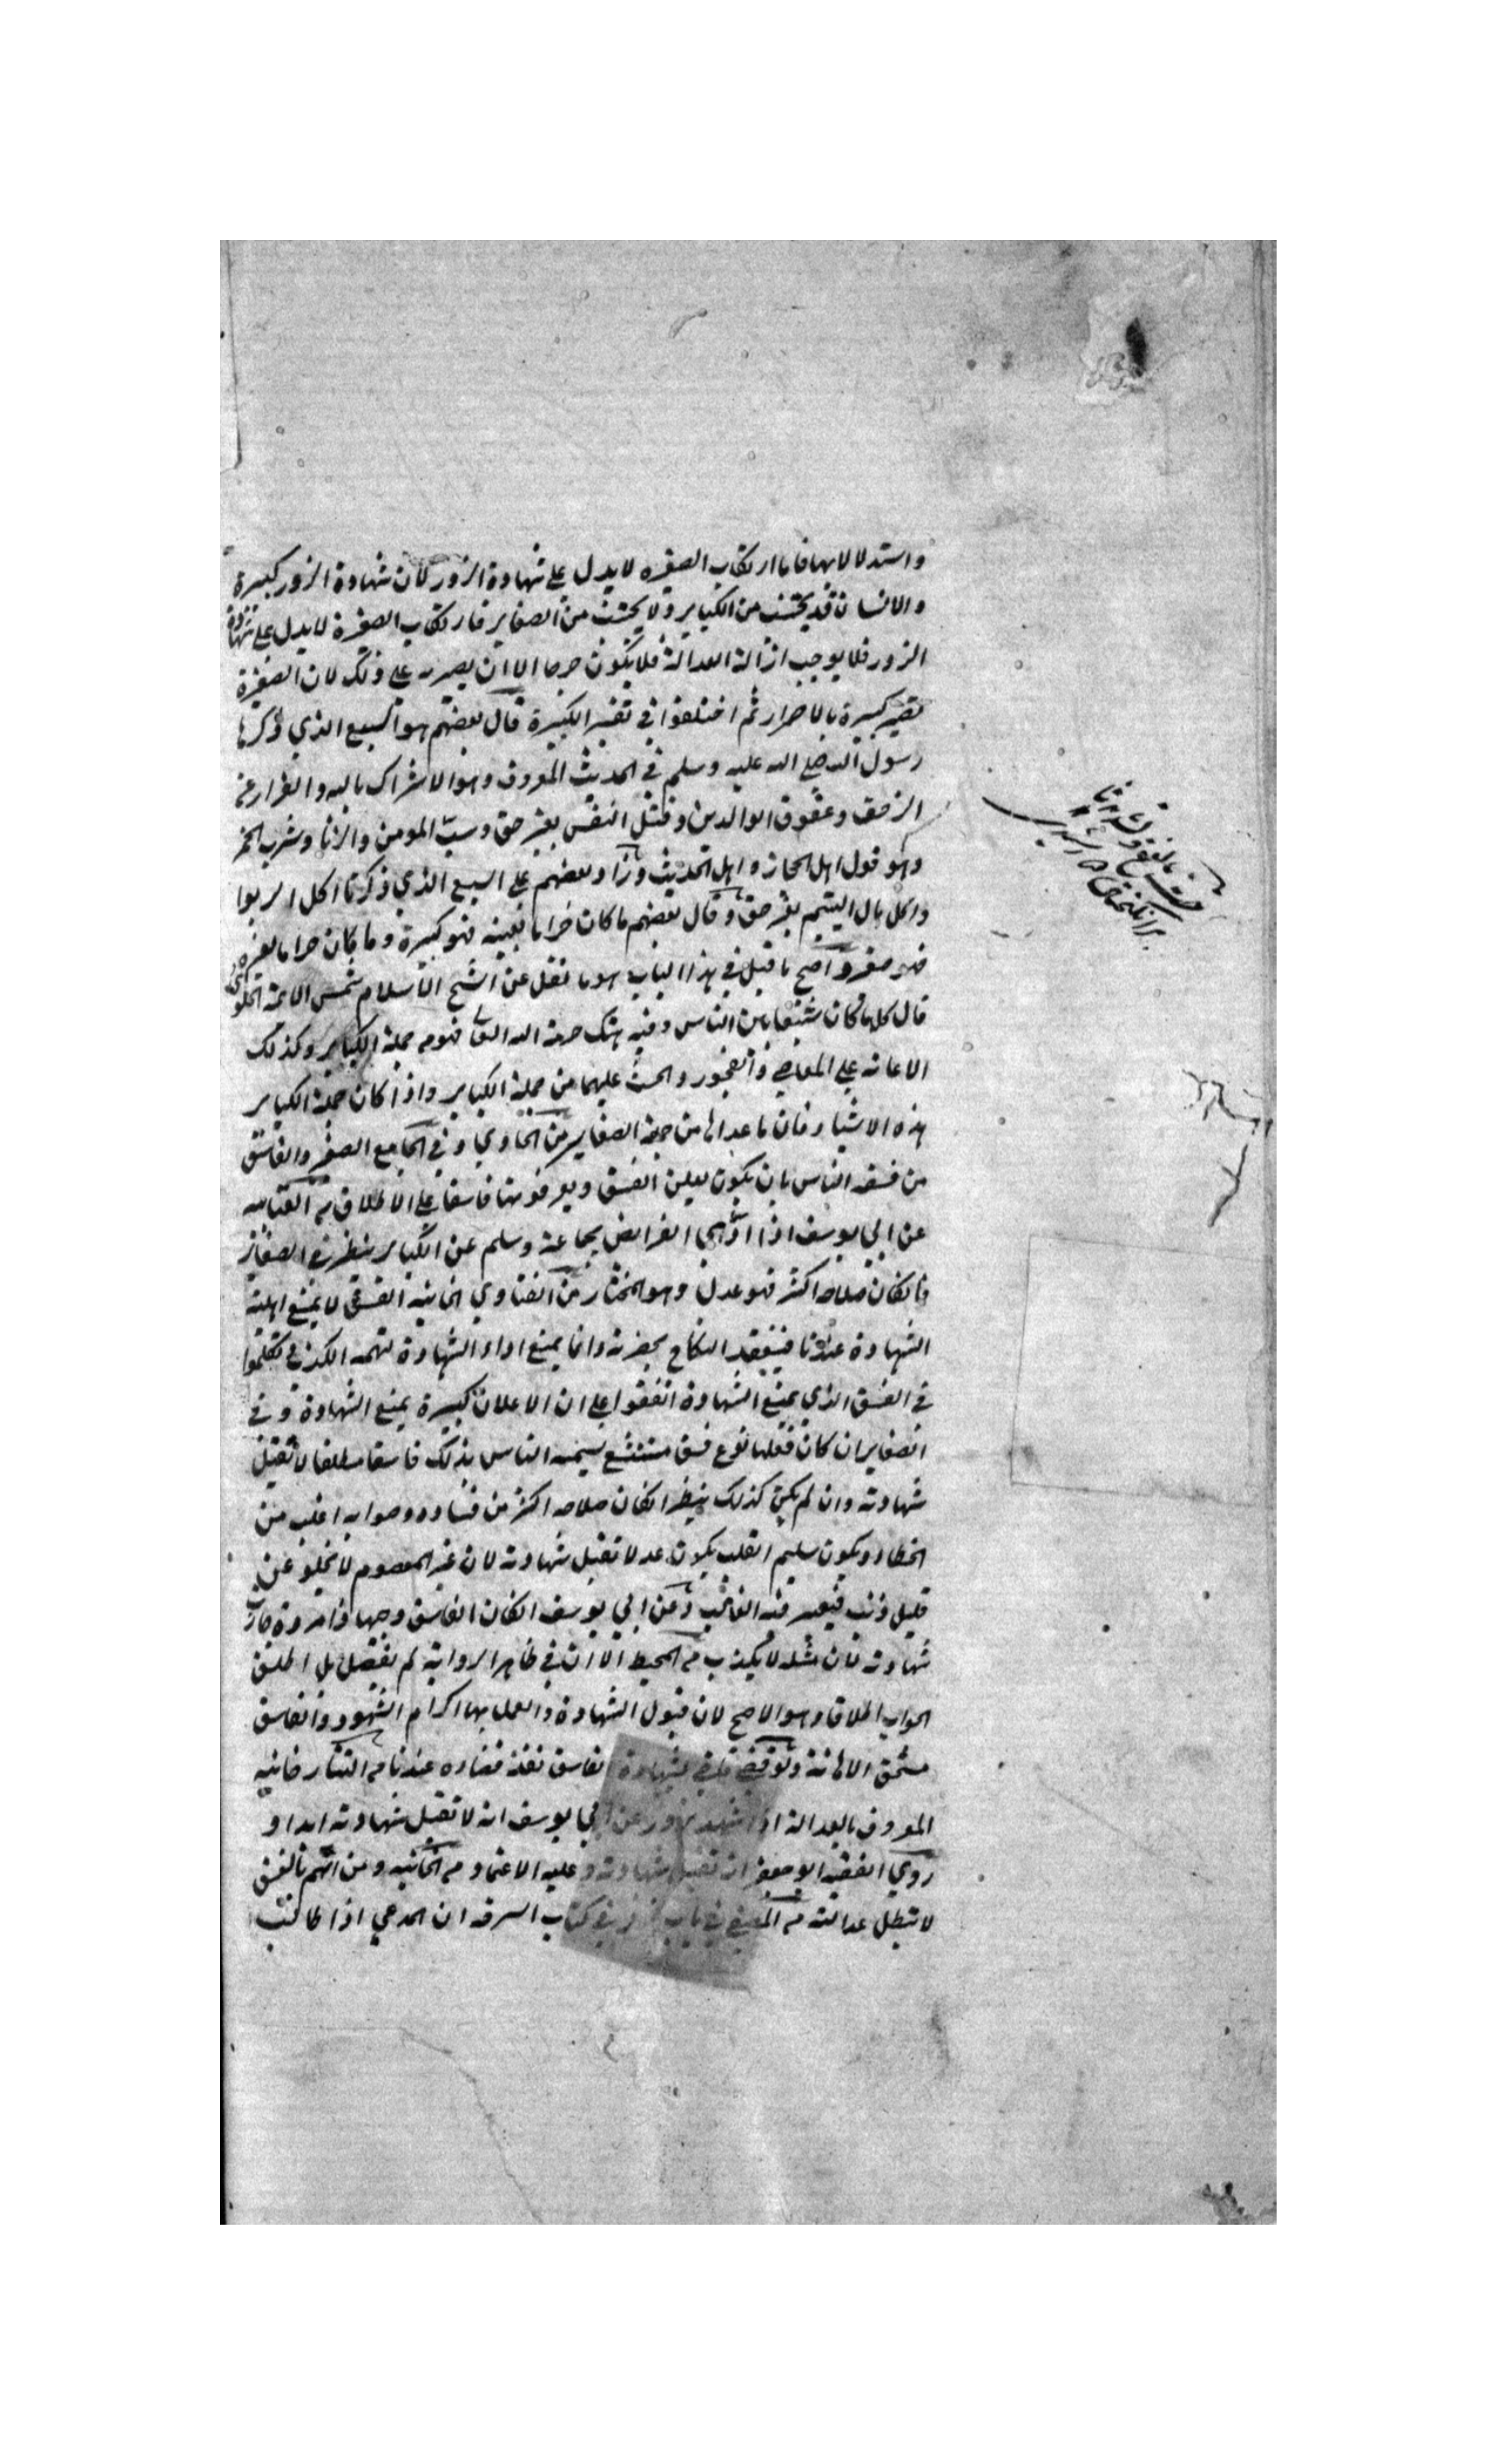 واستدلالا بها فاما ارتكاب الصغيره لا يدل علي شهادة الزور لان شهادة الزور كبيرة
والانسان قد يجتنب من الكباير ولا يجتنب من الصغاير فارتكاب الصغيرة لا يدل علي شهادة
الزور فلا يوجب ازالة العدالة فلا يكون جرحا الا ان يصر علي ذلك لان الصغيرة
تصير كبيرة بالاصرار ثم اختلفوا في تفسير الكبيرة قال بعضهم هو السبع الذي ذكرها
رسول الله صلي الله عليه وسلم في الحديث المعروف وهو الاشراك بالله والفرار من
الزحف وعقوق الوالدين وقتل النفس بغير حق وسب المومن والزنا وشرب الخمر
وهو قول اهل الحجاز واهل الحديث وزاد بعضهم علي السبع الذي ذكرنا اكل الربوا
واكل مال اليتيم بغير حق وقال بعضهم ما كان حراما بعينه فهو كبيرة وما كان حراما لغيره
فهو صغيرة واصح ما قيل في هذا الباب هو ما نقل عن الشيخ الاسلام شمس الائمة الحلواني
قال كل ما كان شنيعا بين الناس وفيه هتك حرمة الله تعالى فهو من جملة الكباير وكذلك
الاعانه علي المعاصي والفجور والحث عليهما من جملة الكباير واذا كان جملة الكباير
هذه الاشياء فان ما عداها من جملة الصغاير من الحاوي وفي الجامع الصغير والفاسق
من فسقه الناس بان يكون يعلن الفسق ويعرفونه فاسقا علي الاطلاق من العتابيه
عن ابي يوسف اذا ادي الفرايض بجماعة وسلم عن الكباير ينظر في الصغاير
فان كان صلاحه اكثر فهو عدل وهو المختار من الفتاوي الخانيه الفسق لا يمنع اهلية
الشهادة عندنا فينعقد النكاح بحضرته وانما يمنع اداء الشهادة لتهمة الكذب تكلموا
في الفسق الذي يمنع الشهادة اتفقوا علي ان الاعلان كبيرة يمنع الشهادة وفي
الصغاير ان كان فعلها نوع فسق مستشنع يسميه الناس بذلك فاسقا مطلقا لا تقبل
شهادته وان لم يكن كذلك ينظر ان كان صلاحه اكثر من فساده وصوابه اغلب من
الخطاء ويكون سليم القلب يكون عدلا تقبل شهادته لان غير المعصوم لا يخلو عن
قليل ذنب فيعتبر فيه الغالب وعن ابي يوسف ان كان الفاسق وجيها ذا مروة جازت
شهادته لان مثله لا يكذب من المحيط الا ان في ظاهر الرواية لم يفصل بل اطلق
الجواب اطلاقا وهو الاصح لان قبول الشهادة والعمل بها اكرام الشهود والفاسق
مستحق الاهانة ولو قضي قاضي بشهادة الفاسق نفذ قضاءه عندنا من التتارخانيه
المعروف بالعدالة اذا شهد بزور عن ابي يوسف انه لا تقبل شهادته ابدا و
روي الفقيه ابو جعفر انه تقبل شهادته وعليه الاعتماد من الخانيه ومن اتهم بالفسق
لا تبطل عدالته من المغني في باب كتاب السرقه ان المدعي اذا طالت